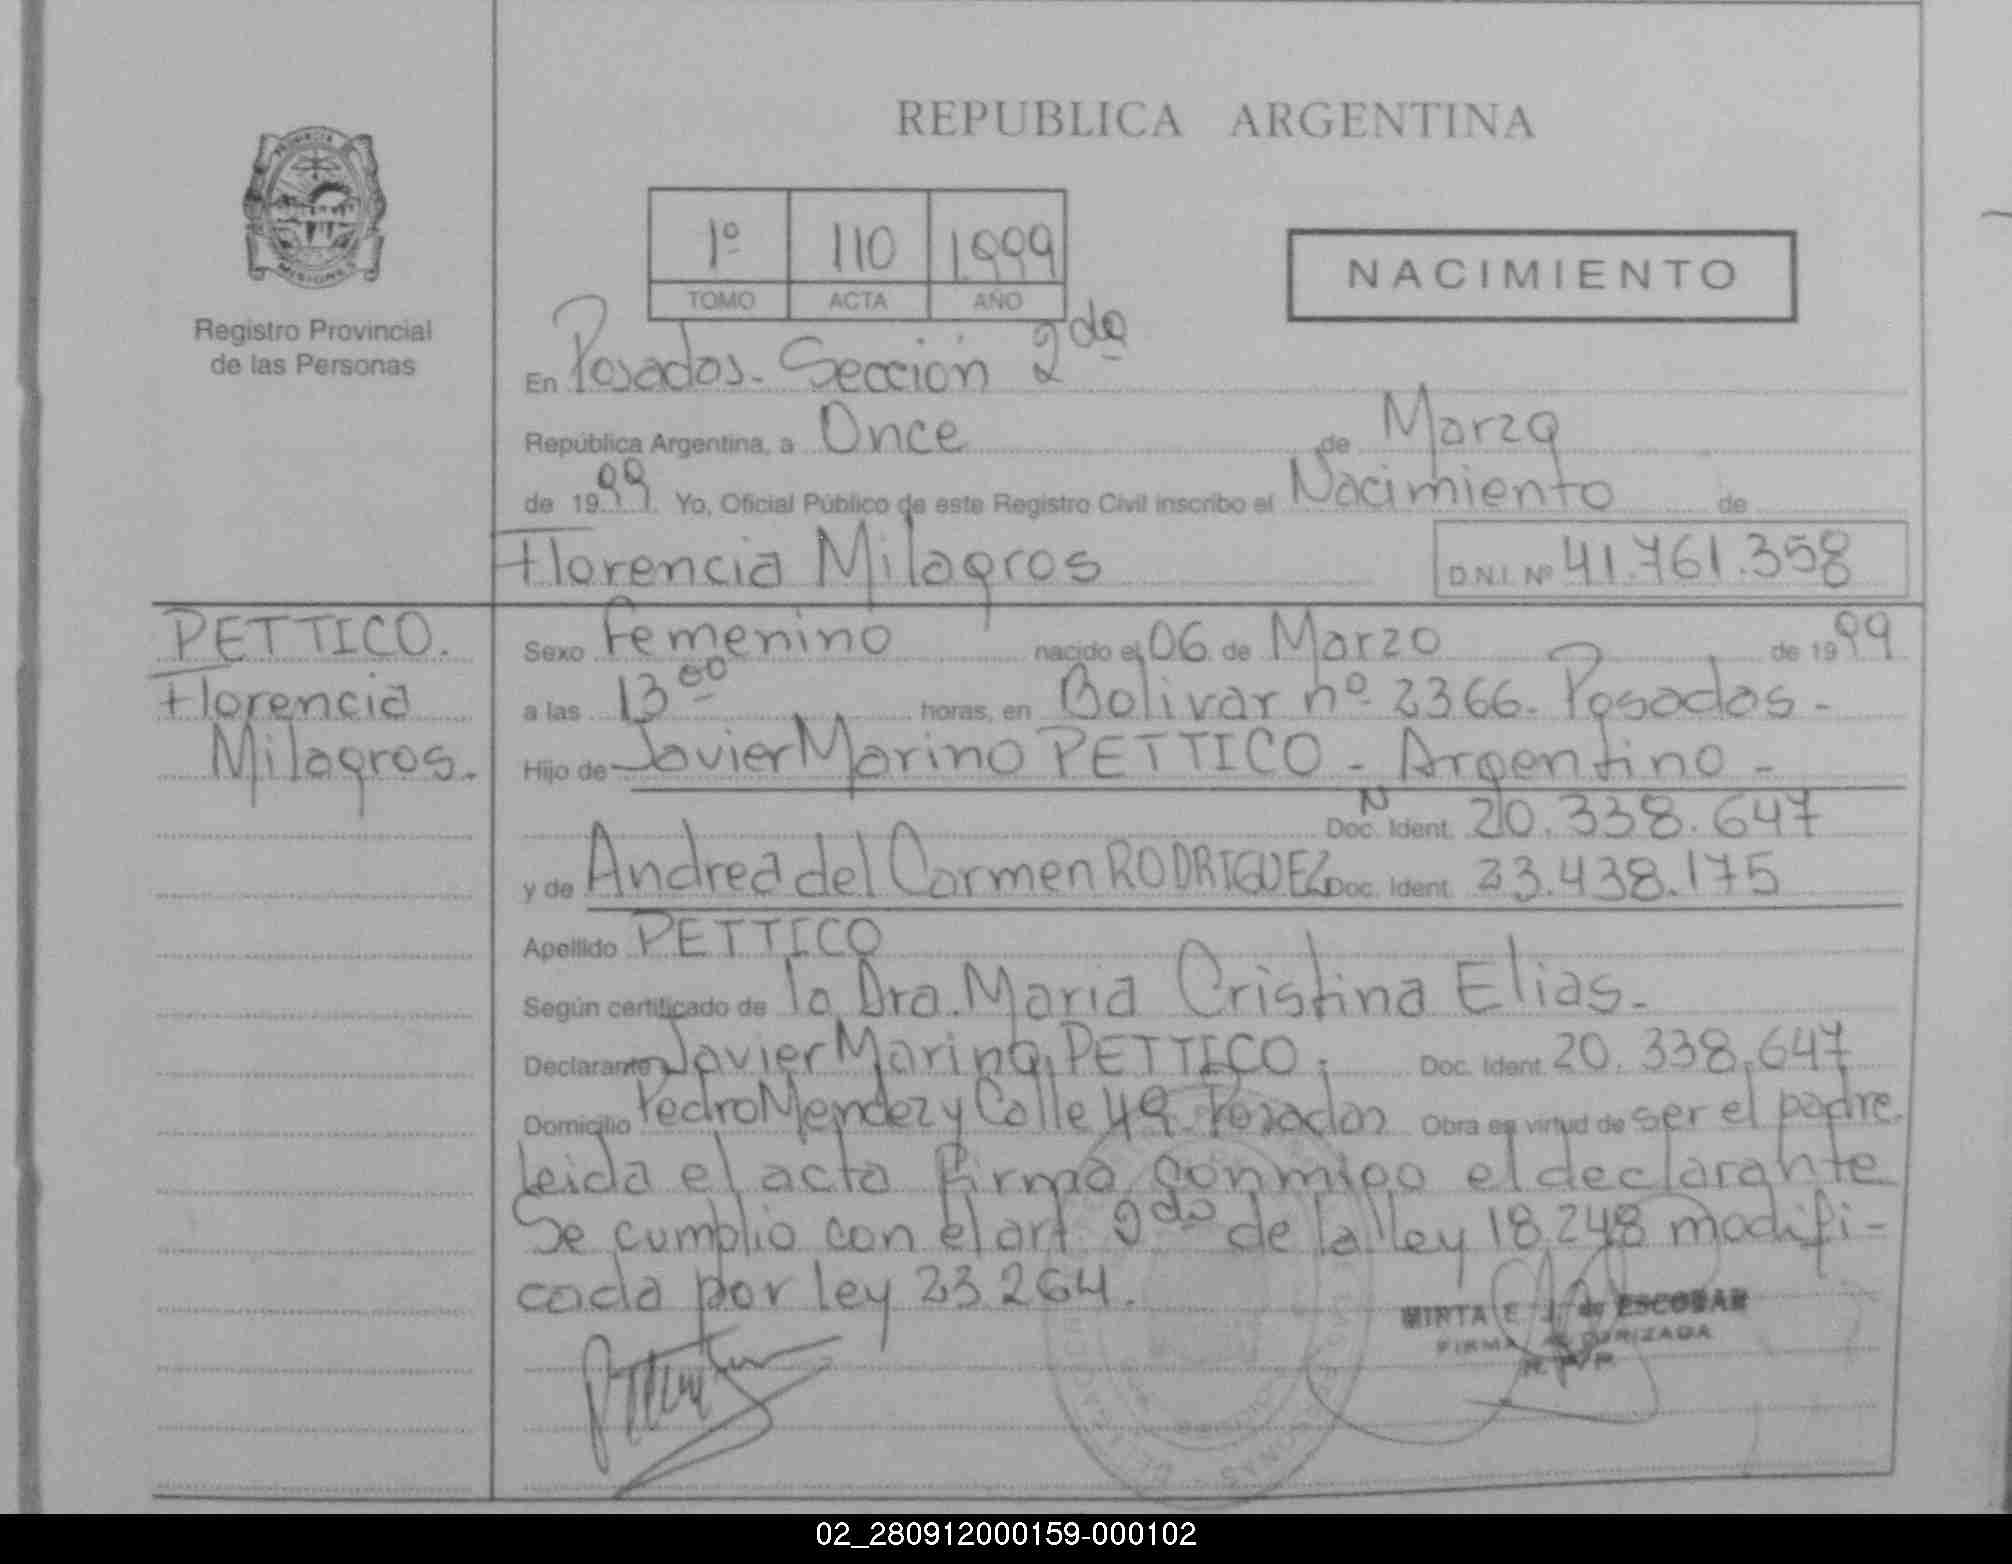 REPUBLICA ARGENTINA
PROVINCIA
MISIONES
Registro Provincial
de las Personas
1º 110 1.999
TOMO ACTA AÑO
NACIMIENTO
En Posadas. Sección 2da
República Argentina, a Once de Marzo
de 1999 Yo, Oficial Público de este Registro Civil inscribo el Nacimiento de
Florencia Milagros D.N.I. Nº 41.761.358
PETTICO.
Florencia
Milagros.
Sexo Femenino nacido el 06 de Marzo de 1999
a las 13 00 horas, en Bolivar nº 2366. Posadas.
Hijo de Javier Marino PETTICO - Argentino -
Doc. N Ident. 20.338.647
y de Andrea del Carmen RODRIGUEZ Doc. Ident. 23.438.175
Apellido PETTICO
Según certificado de la Dra. Maria Cristina Elias.
Declarante Javier Marino PETTICO. Doc. Ident. 20.338.647
Domicilio Pedro Mendez y Calle 49. Posadas Obra en virtud de ser el padre
leida el acta firma conmigo el declarante
Se cumplio con el art 2do de la ley 18.248 modifi-
cada por ley 23.264.
MIRTA E. J. de ESCOBAR
FIRMA AUTORIZADA
02_280912000159-000102